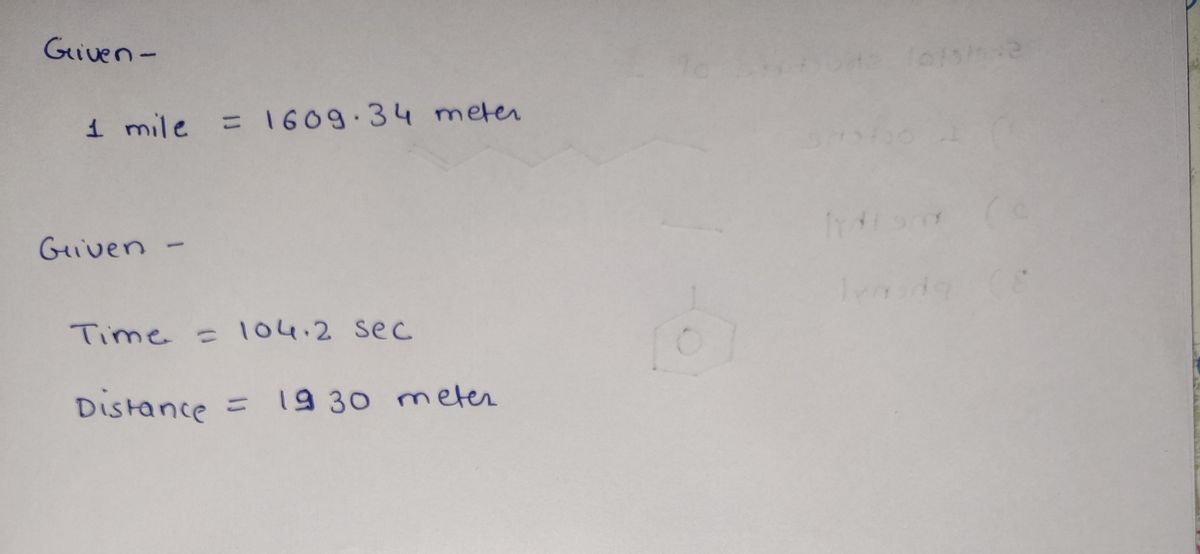 Given -
1 mile = 1609.34 meter
Given -
Time = 104.2 sec
Distance = 1930 meter